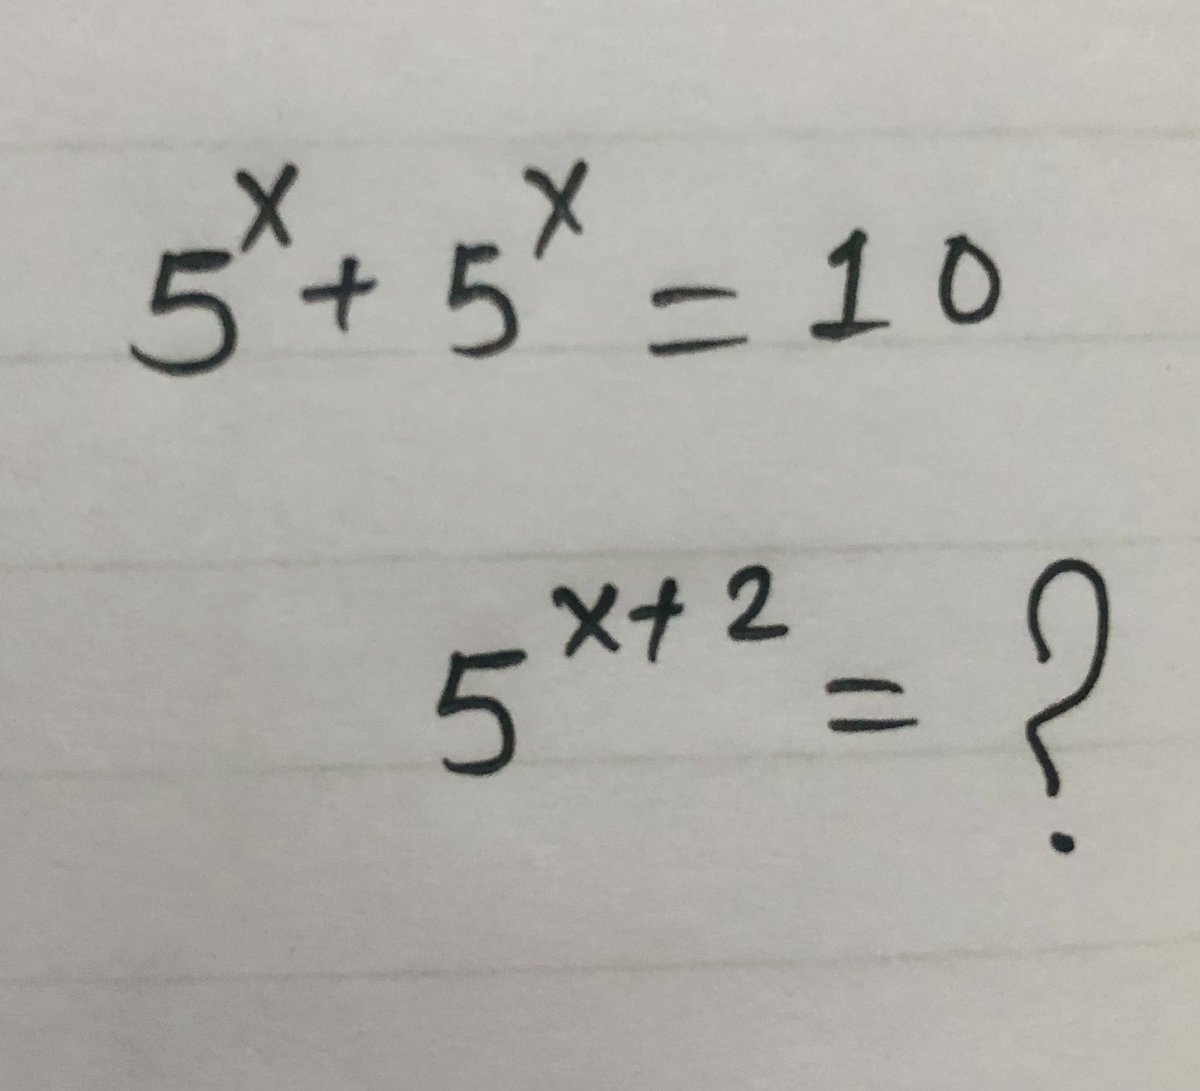 5^x + 5^x = 10
5^x+2 = ?